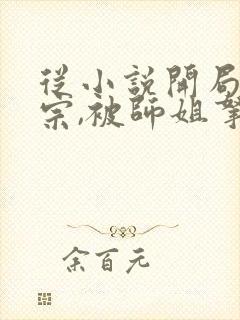 從小說開局
宗,被師姐
余百元